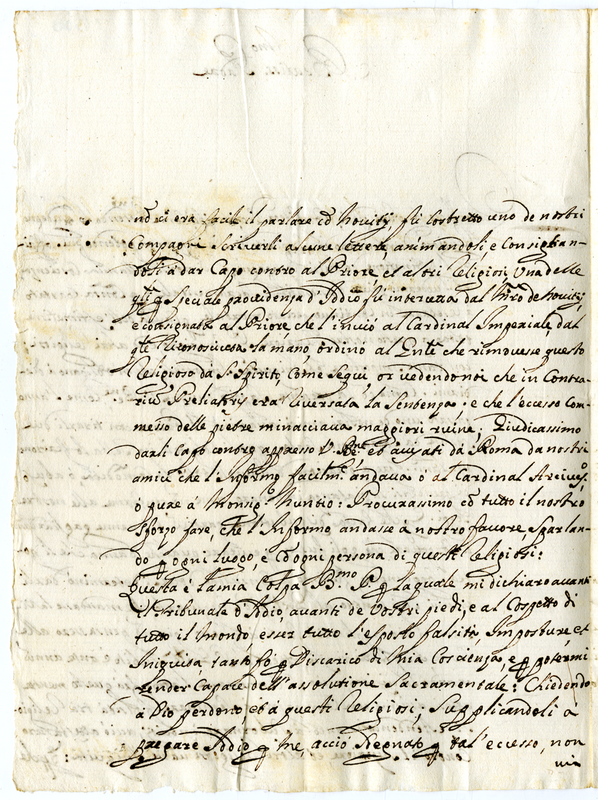 nō ci era facile il parlare cō Novitij, fu Costretto uno de nostri
Compagni scriverli alcune lettere, animandosi, e Consiglian-
dosi a dar Capo contro al Priore, et altri Religiosi Una delle
qli p speciale providenza d'Iddio fu intercetta dal Mro de Novitij,
e consignata al Priore, che l'inviò al Cardinal Imperiale, dal
qle riconosciuta la mano, ordinò al che rimovesse questo
Religioso da Sto Spirito, Come Seguì, or vedendo noi che in Contra-
rium era riversata la Sentenza, e che l'eccesso Com-
messo delle pietre minacciava maggiori ruine, Giudicassimo
darli Capo contro appresso V. Bne et avisati da Roma da nostri
amici che l'Informo facilmte andava o al Cardinal Arcivo,
o pure a Monsigr Nuntio: Procurassimo cō tutto il nostro
sforzo fare, che l'Informo andasse a nostro favore, Sparlan-
do p ogni luogo, e cō ogni persona di questi Religiosi:
Questa è la mia Colpa Bmo P. p la quale mi dichiaro avanti
il Tribunale d'Iddio, avanti de Vostri piedi, e al Cospetto di
tutto il Mondo esser tutto l'esposto falsità Imposture, et
Iniquita tanto fò p Discarico di Mia Coscienza, e p potermi
render Capace dell'assolutione Sacramentale: Chiedendo
a Dio perdono, et a questi Religiosi; Supplicandoli a
pregare Iddio p Me, acciò Sdegnato p tal'eccesso, non